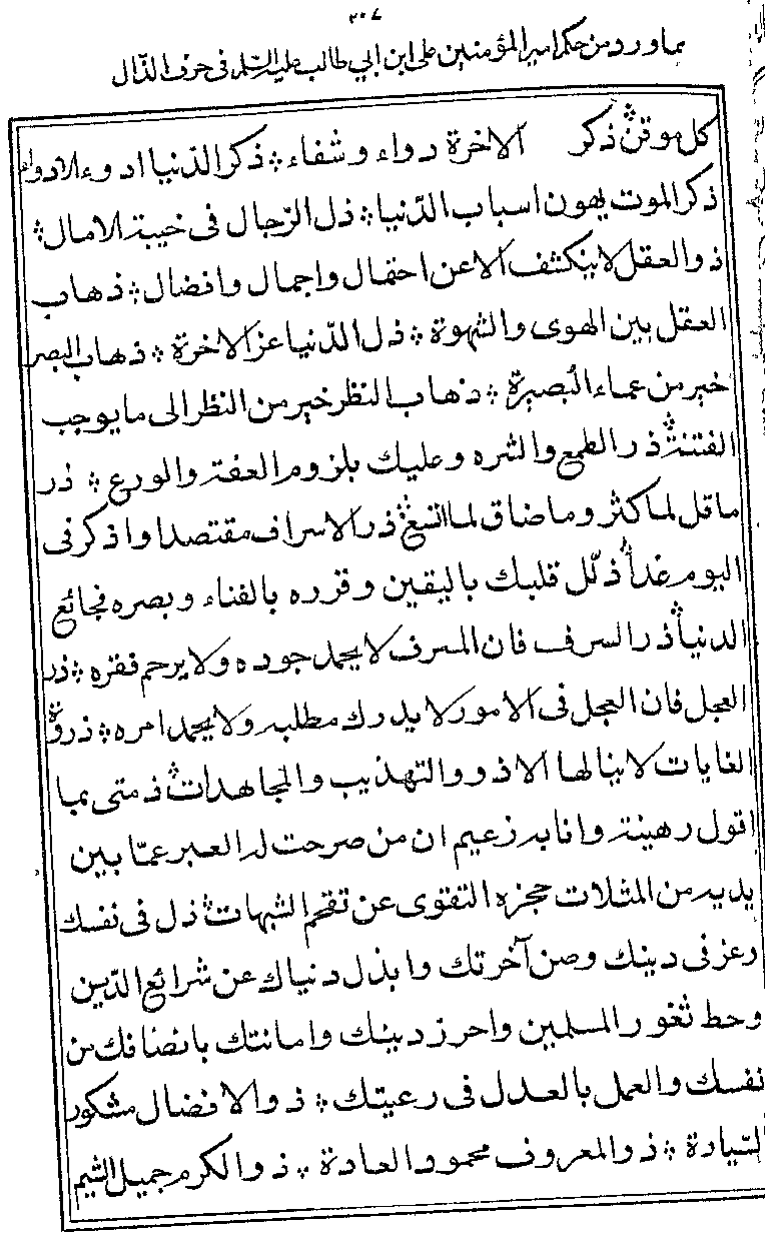 ٢٠٤
بما ورد من حكم امير المؤمنين على ابن ابي طالب عليه السلم في حرف الذال
كل موقن ۞ ذكر الاخرة دواء وشفاء ۞ ذكر الدنيا ادوء الادواء
ذكر الموت يهون اسباب الدنيا ۞ ذل الرجال فى خيبة الامال ۞
ذو العقل لا ينكشف الا عن احتمال واجمال وافضال ۞ ذهاب
العقل بين الهوى والشهوة ۞ ذل الدنيا عز الاخرة ۞ ذهاب البصر
خير من عماء البصيرة ۞ ذهاب النظر خير من النظر الى ما يوجب
الفتنة ۞ ذر الطمع والشره وعليك بلزوم العفة والورع ۞ ذر
ما قل لما كثر وما ضاق لما اتسع ۞ ذر الاسراف مقتصدا واذكر فى
اليوم غداً ۞ ذلّل قلبك باليقين وقرره بالفناء وبصره فجائع
الدنيا ۞ ذر السرف فان المسرف لا يحمد جوده ولا يرحم فقره ۞ ذر
العجل فان العجل فى الامور لا يدرك مطلبه ولا يحمد امره ۞ ذروة
الغايات لا ينالها الا ذوو التهذيب والمجاهدات ۞ ذمتى بما
اقول رهينة وانا به زعيم ان من صرحت له العبر عمّا بين
يديه من المثلات حجزه التقوى عن تقحم الشبهات ۞ ذل فى نفسك
وعز فى دينك وصن آخرتك وابذل دنياك عن شرائع الدين
وحط ثغور المسلمين واحرز دينك وامانتك بانصافك من
نفسك والعمل بالعدل فى رعيتك ۞ ذو الافضال مشكور
السيادة ۞ ذو المعروف محمود العادة ۞ ذو الكرم جميل الشيم